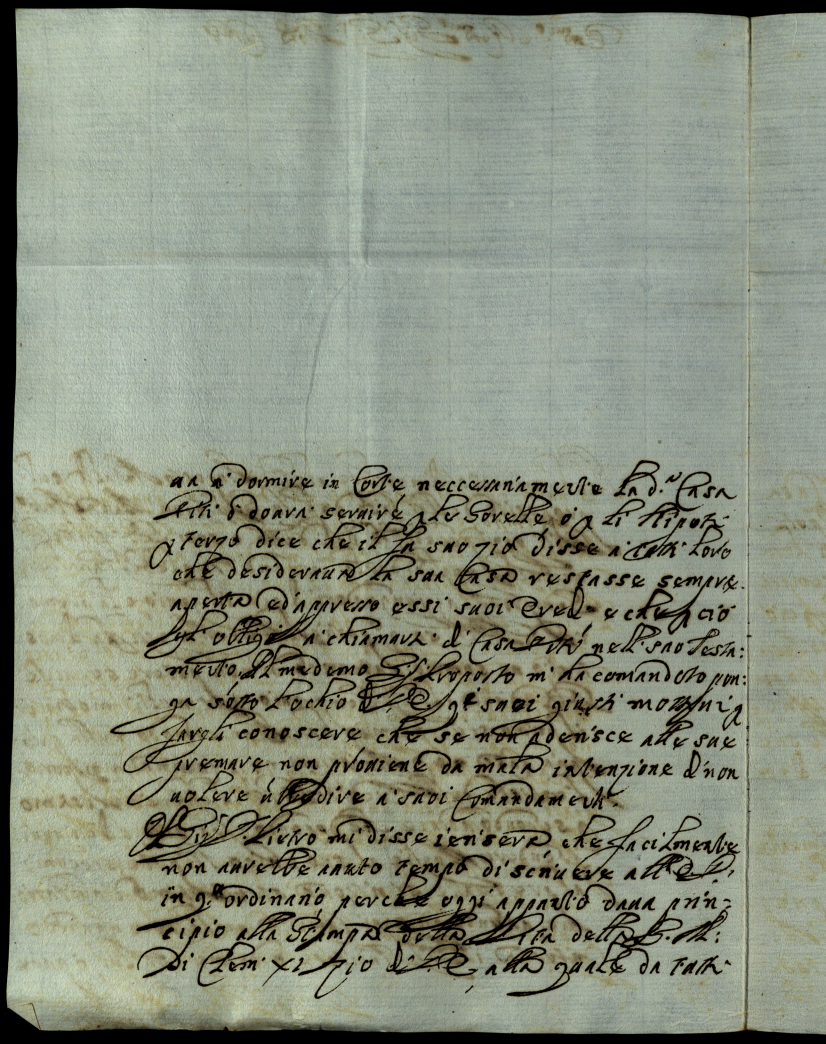 ua a' dormire in Corte neccessariamente la d.ª Casa
che dovrà servire p le Sorelle ò p li Nipoti
p terzo dice che il fù suo zio disse a' tutti loro
che desiderava la sua Casa restasse sempre
aperta ed appresso essi suoi Eredi e che p ciò
gl' obligò a' chiamarsi di Casa nell suo Testa:
mento. Il medemo Sig.r Proposto m' ha comandato pon:
ga sotto l'ochio di V.E. q.ti suoi giusti motivi p
fargli conoscere che se non aderisce alle sue
premure non proviene da mala intenzione di non
volere ubbedire a' suoi Comandamenti.
Il Sig.r Pietro mi disse ierisera che facilmente
non averebbe auuto tempo di scrivere all' E.V.
in q.to ordinario perche oggi appunto dava prin-
cipio alla Stampa della Vita della S. M:
Di Clem: XI zio di V.E. alla quale da tutti